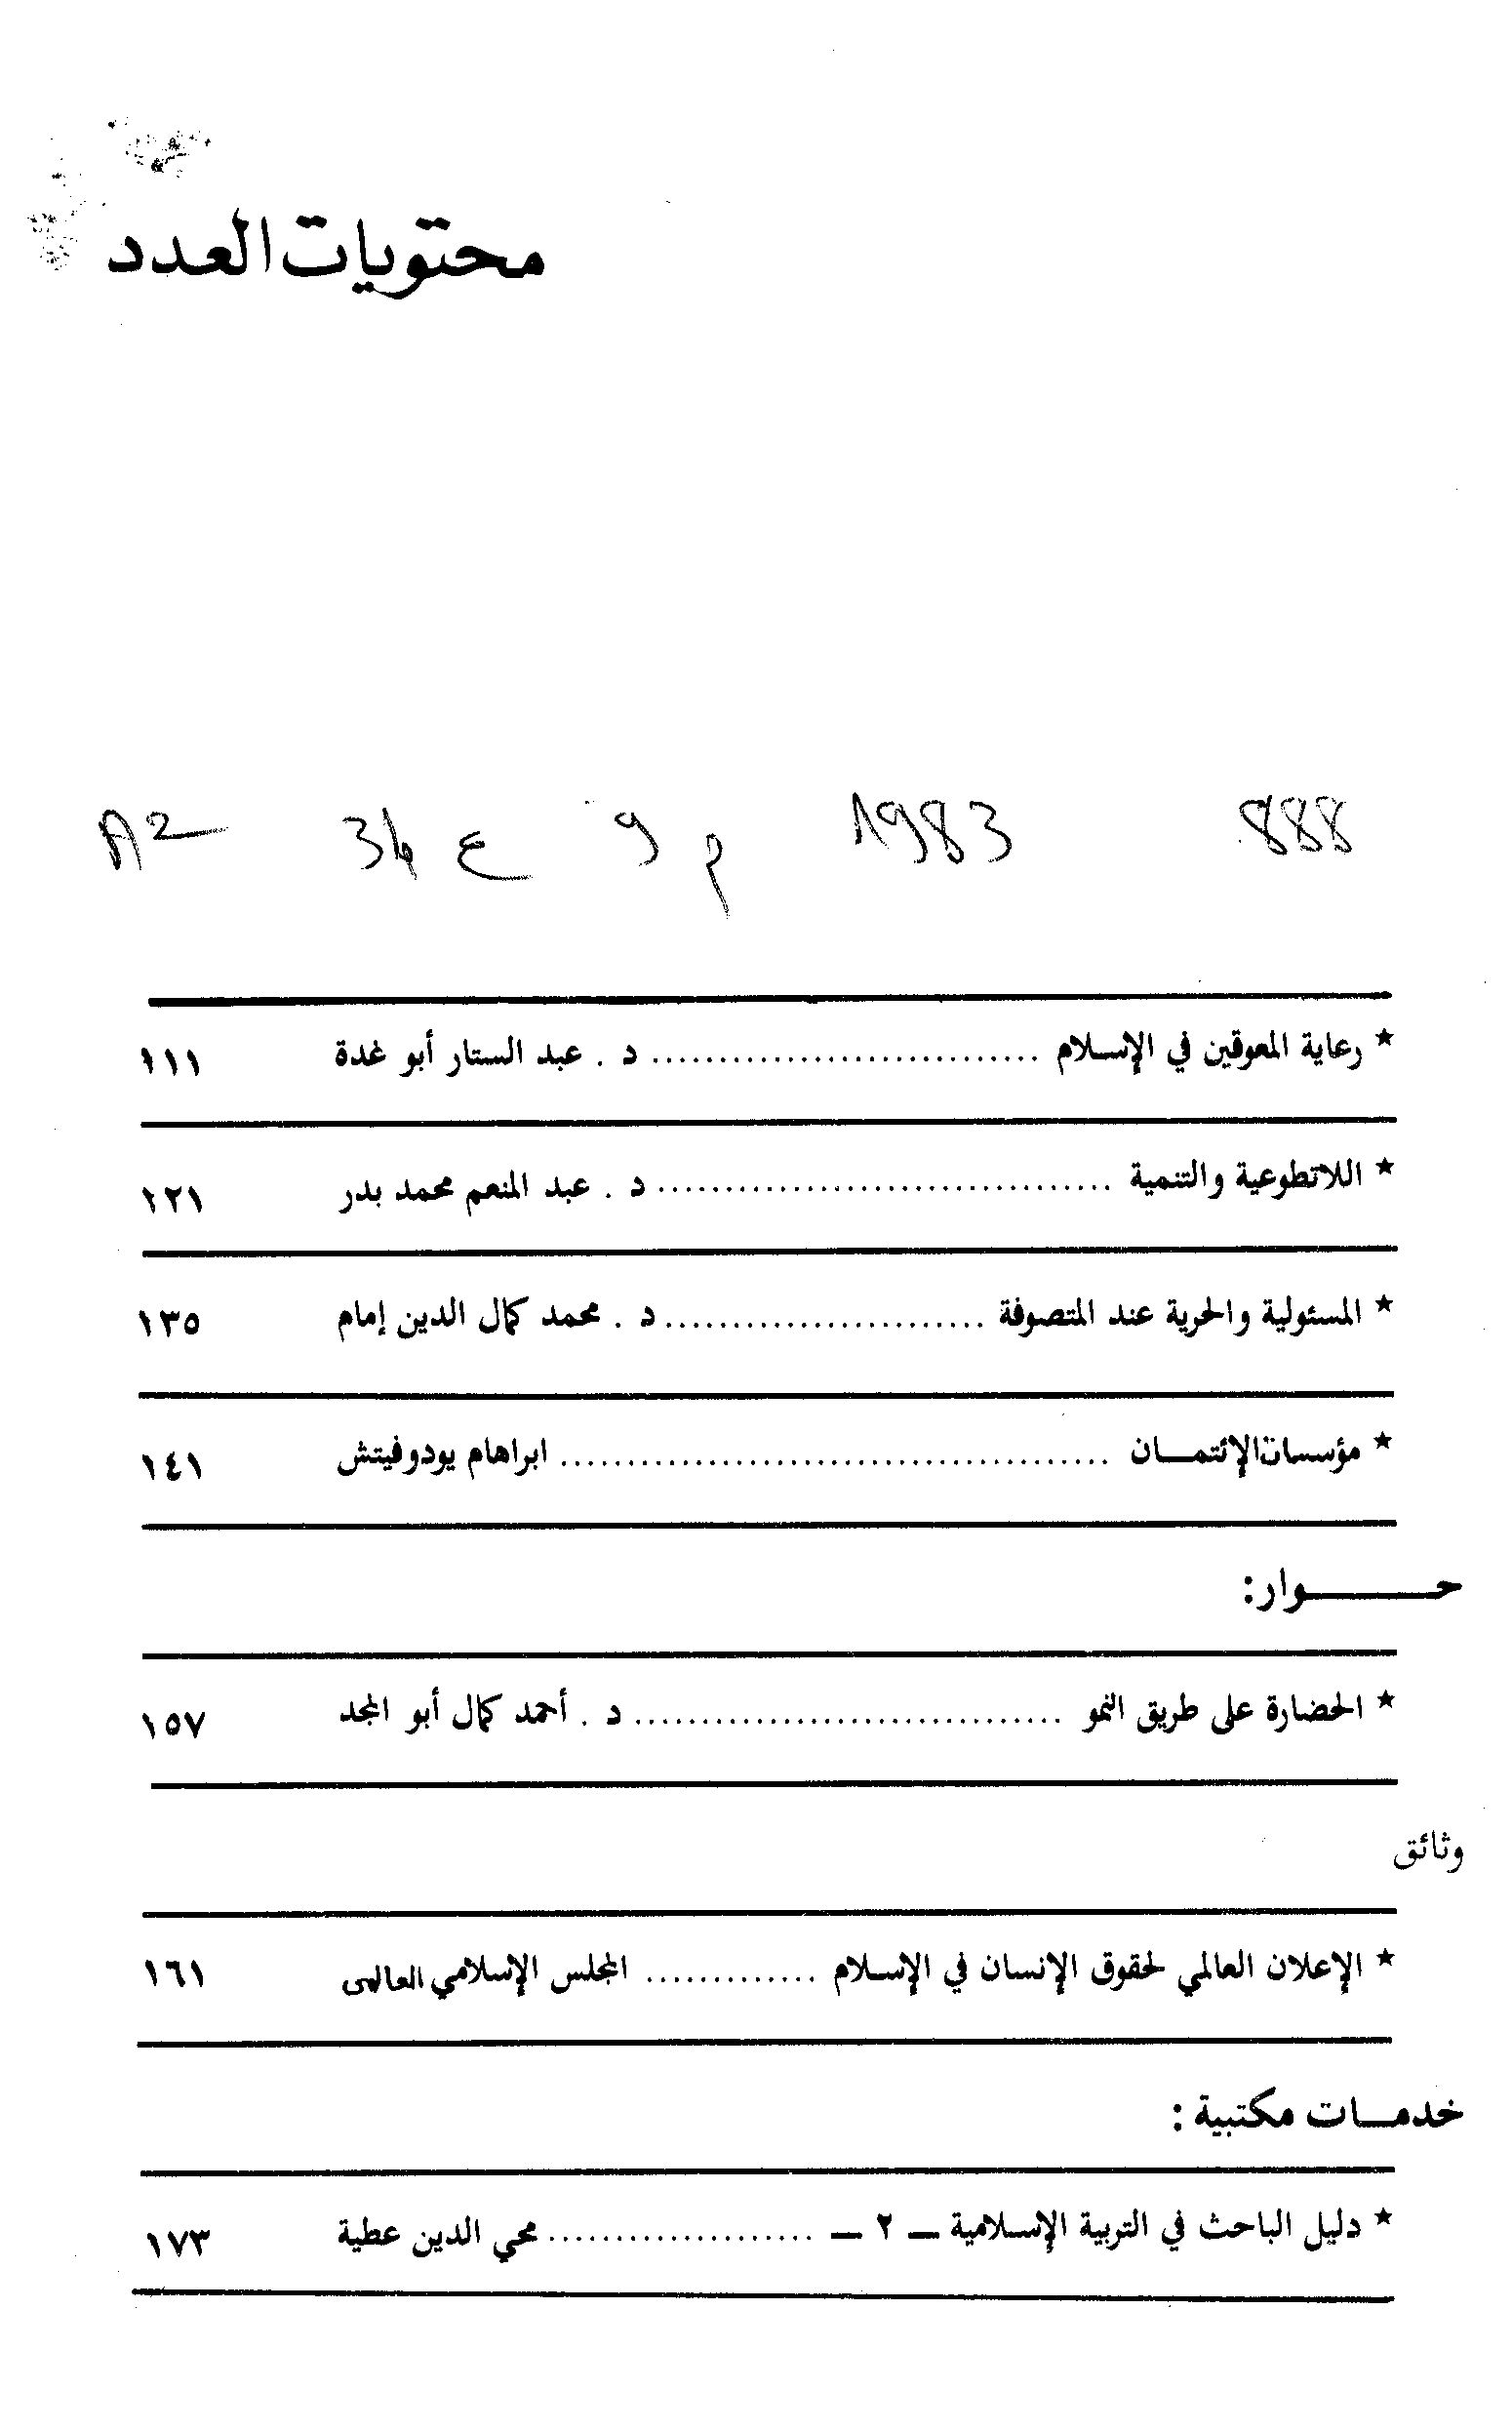 محتويات العدد
888 1983 م 9 ع 34 A2
* رعاية المعوقين في الإسلام ............................. د . عبد الستار أبو غدة ١١١
* اللاتطوعية والتنمية .................................. د . عبد المنعم محمد بدر ١٢١
* المسئولية والحرية عند المتصوفة ........................ د . محمد كمال الدين إمام ١٣٥
* مؤسسات الإئتمـــان ......................................... ابراهام يودوفيتش ١٤١
حــــــــوار:
* الحضارة على طريق النمو ................................ د . أحمد كمال أبو المجد ١٥٧
وثائق
* الإعلان العالمي لحقوق الإنسان في الإسلام ............. المجلس الإسلامي العالمى ١٦١
خدمـــات مكتبية :
* دليل الباحث في التربية الإسلامية ـ ٢ ـ .................... محي الدين عطية ١٧٣